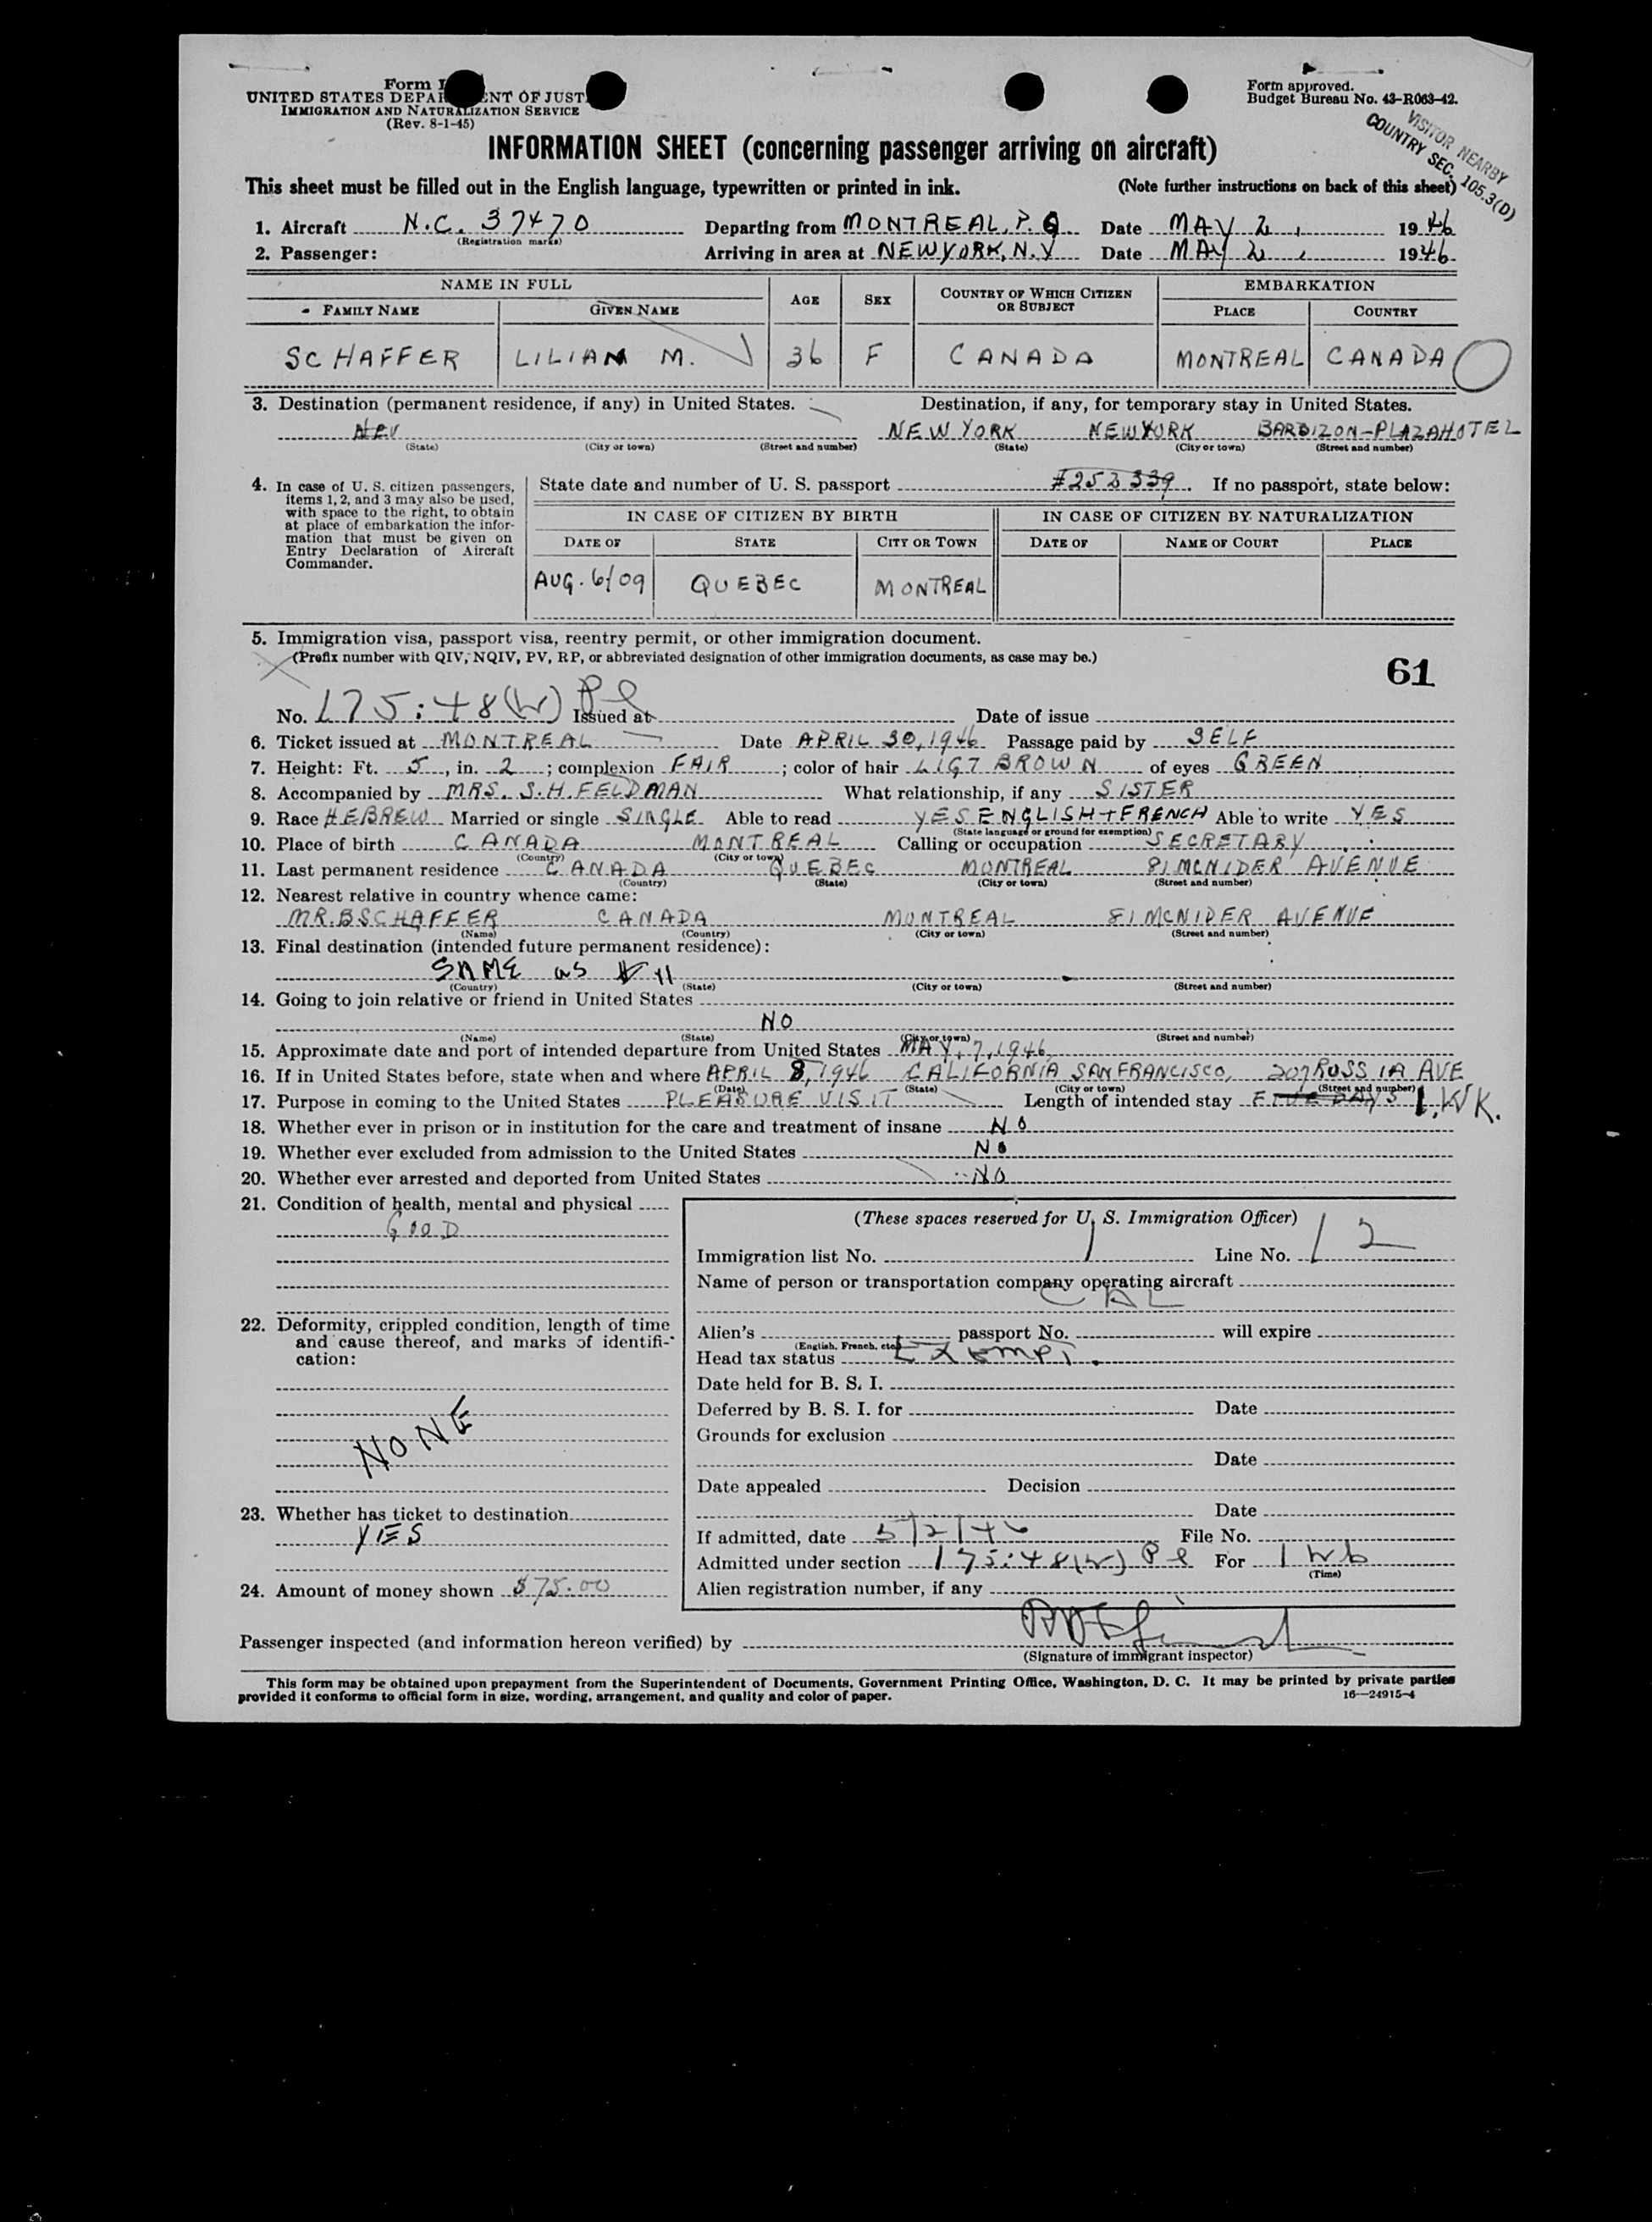 Form I
UNITED STATES DEPA ENT OF JUST
IMMIGRATION AND NATURALIZATION SERVICE
(Rev. 8-1-45)
Form approved.
Budget Bureau No. 43-R063-42.
VISITOR NEARBY
COUNTRY SEC. 105.3(D)
INFORMATION SHEET (concerning passenger arriving on aircraft)
This sheet must be filled out in the English language, typewritten or printed in ink. (Note further instructions on back of this sheet)
1. Aircraft N.C. 37470 Departing from MONTREAL, P.Q. Date MAY 2, 1946
(Registration marks)
2. Passenger: Arriving in area at NEWYORK, N.Y Date MAY 2, 1946.
NAME IN FULL AGE SEX COUNTRY OF WHICH CITIZEN OR SUBJECT EMBARKATION
FAMILY NAME GIVEN NAME PLACE COUNTRY
SCHAFFER LILIAN M. 36 F CANADA MONTREAL CANADA
3. Destination (permanent residence, if any) in United States. Destination, if any, for temporary stay in United States.
NEW YORK NEWYORK BARBIZON-PLAZAHOTEL
(State) (City or town) (Street and number) (State) (City or town) (Street and number)
4. In case of U. S. citizen passengers, items 1, 2, and 3 may also be used, with space to the right, to obtain at place of embarkation the information that must be given on Entry Declaration of Aircraft Commander.
State date and number of U. S. passport #252339. If no passport, state below:
IN CASE OF CITIZEN BY BIRTH IN CASE OF CITIZEN BY NATURALIZATION
DATE OF STATE CITY OR TOWN DATE OF NAME OF COURT PLACE
AUG. 6/09 QUEBEC MONTREAL
5. Immigration visa, passport visa, reentry permit, or other immigration document.
(Prefix number with QIV, NQIV, PV, RP, or abbreviated designation of other immigration documents, as case may be.)
61
No. 175:48(W) Pl Issued at Date of issue
6. Ticket issued at MONTREAL Date APRIL 30, 1946 Passage paid by SELF
7. Height: Ft. 5, in. 2; complexion FAIR; color of hair LIGT BROWN of eyes GREEN
8. Accompanied by MRS. S.H. FELDMAN What relationship, if any SISTER
9. Race HEBREW Married or single SINGLE Able to read YES ENGLISH + FRENCH Able to write YES
(State language or ground for exemption)
10. Place of birth CANADA MONTREAL Calling or occupation SECRETARY
(Country) (City or town)
11. Last permanent residence CANADA QUEBEC MONTREAL 81 MCNIDER AVENUE
(Country) (State) (City or town) (Street and number)
12. Nearest relative in country whence came:
MR. B SCHAFFER CANADA MONTREAL 81 MCNIDER AVENUE
(Name) (Country) (City or town) (Street and number)
13. Final destination (intended future permanent residence):
SAME as 11
(Country) (State) (City or town) (Street and number)
14. Going to join relative or friend in United States
NO
(Name) (State) (City or town) (Street and number)
15. Approximate date and port of intended departure from United States MAY, 7, 1946,
16. If in United States before, state when and where APRIL 8, 1946 CALIFORNIA SANFRANCISCO, 207 RUSSIA AVE
(Date) (State) (City or town) (Street and number)
17. Purpose in coming to the United States PLEASURE VISIT Length of intended stay FIVE DAYS 1. WK.
18. Whether ever in prison or in institution for the care and treatment of insane NO
19. Whether ever excluded from admission to the United States NO
20. Whether ever arrested and deported from United States NO
21. Condition of health, mental and physical
GOOD
(These spaces reserved for U. S. Immigration Officer)
Immigration list No. 1 Line No. 12
Name of person or transportation company operating aircraft
CAL
22. Deformity, crippled condition, length of time and cause thereof, and marks of identification:
NONE
Alien's passport No. will expire
(English, French, etc.)
Head tax status Exempt.
Date held for B. S. I.
Deferred by B. S. I. for Date
Grounds for exclusion
Date
Date appealed Decision
Date
23. Whether has ticket to destination
YES
If admitted, date 5/2/46 File No.
Admitted under section 175:48(W) Pl For 1 wk
(Time)
24. Amount of money shown $75.00
Alien registration number, if any
Passenger inspected (and information hereon verified) by
(Signature of immigrant inspector)
This form may be obtained upon prepayment from the Superintendent of Documents, Government Printing Office, Washington, D. C. It may be printed by private parties
provided it conforms to official form in size, wording, arrangement, and quality and color of paper. 16—24915-4